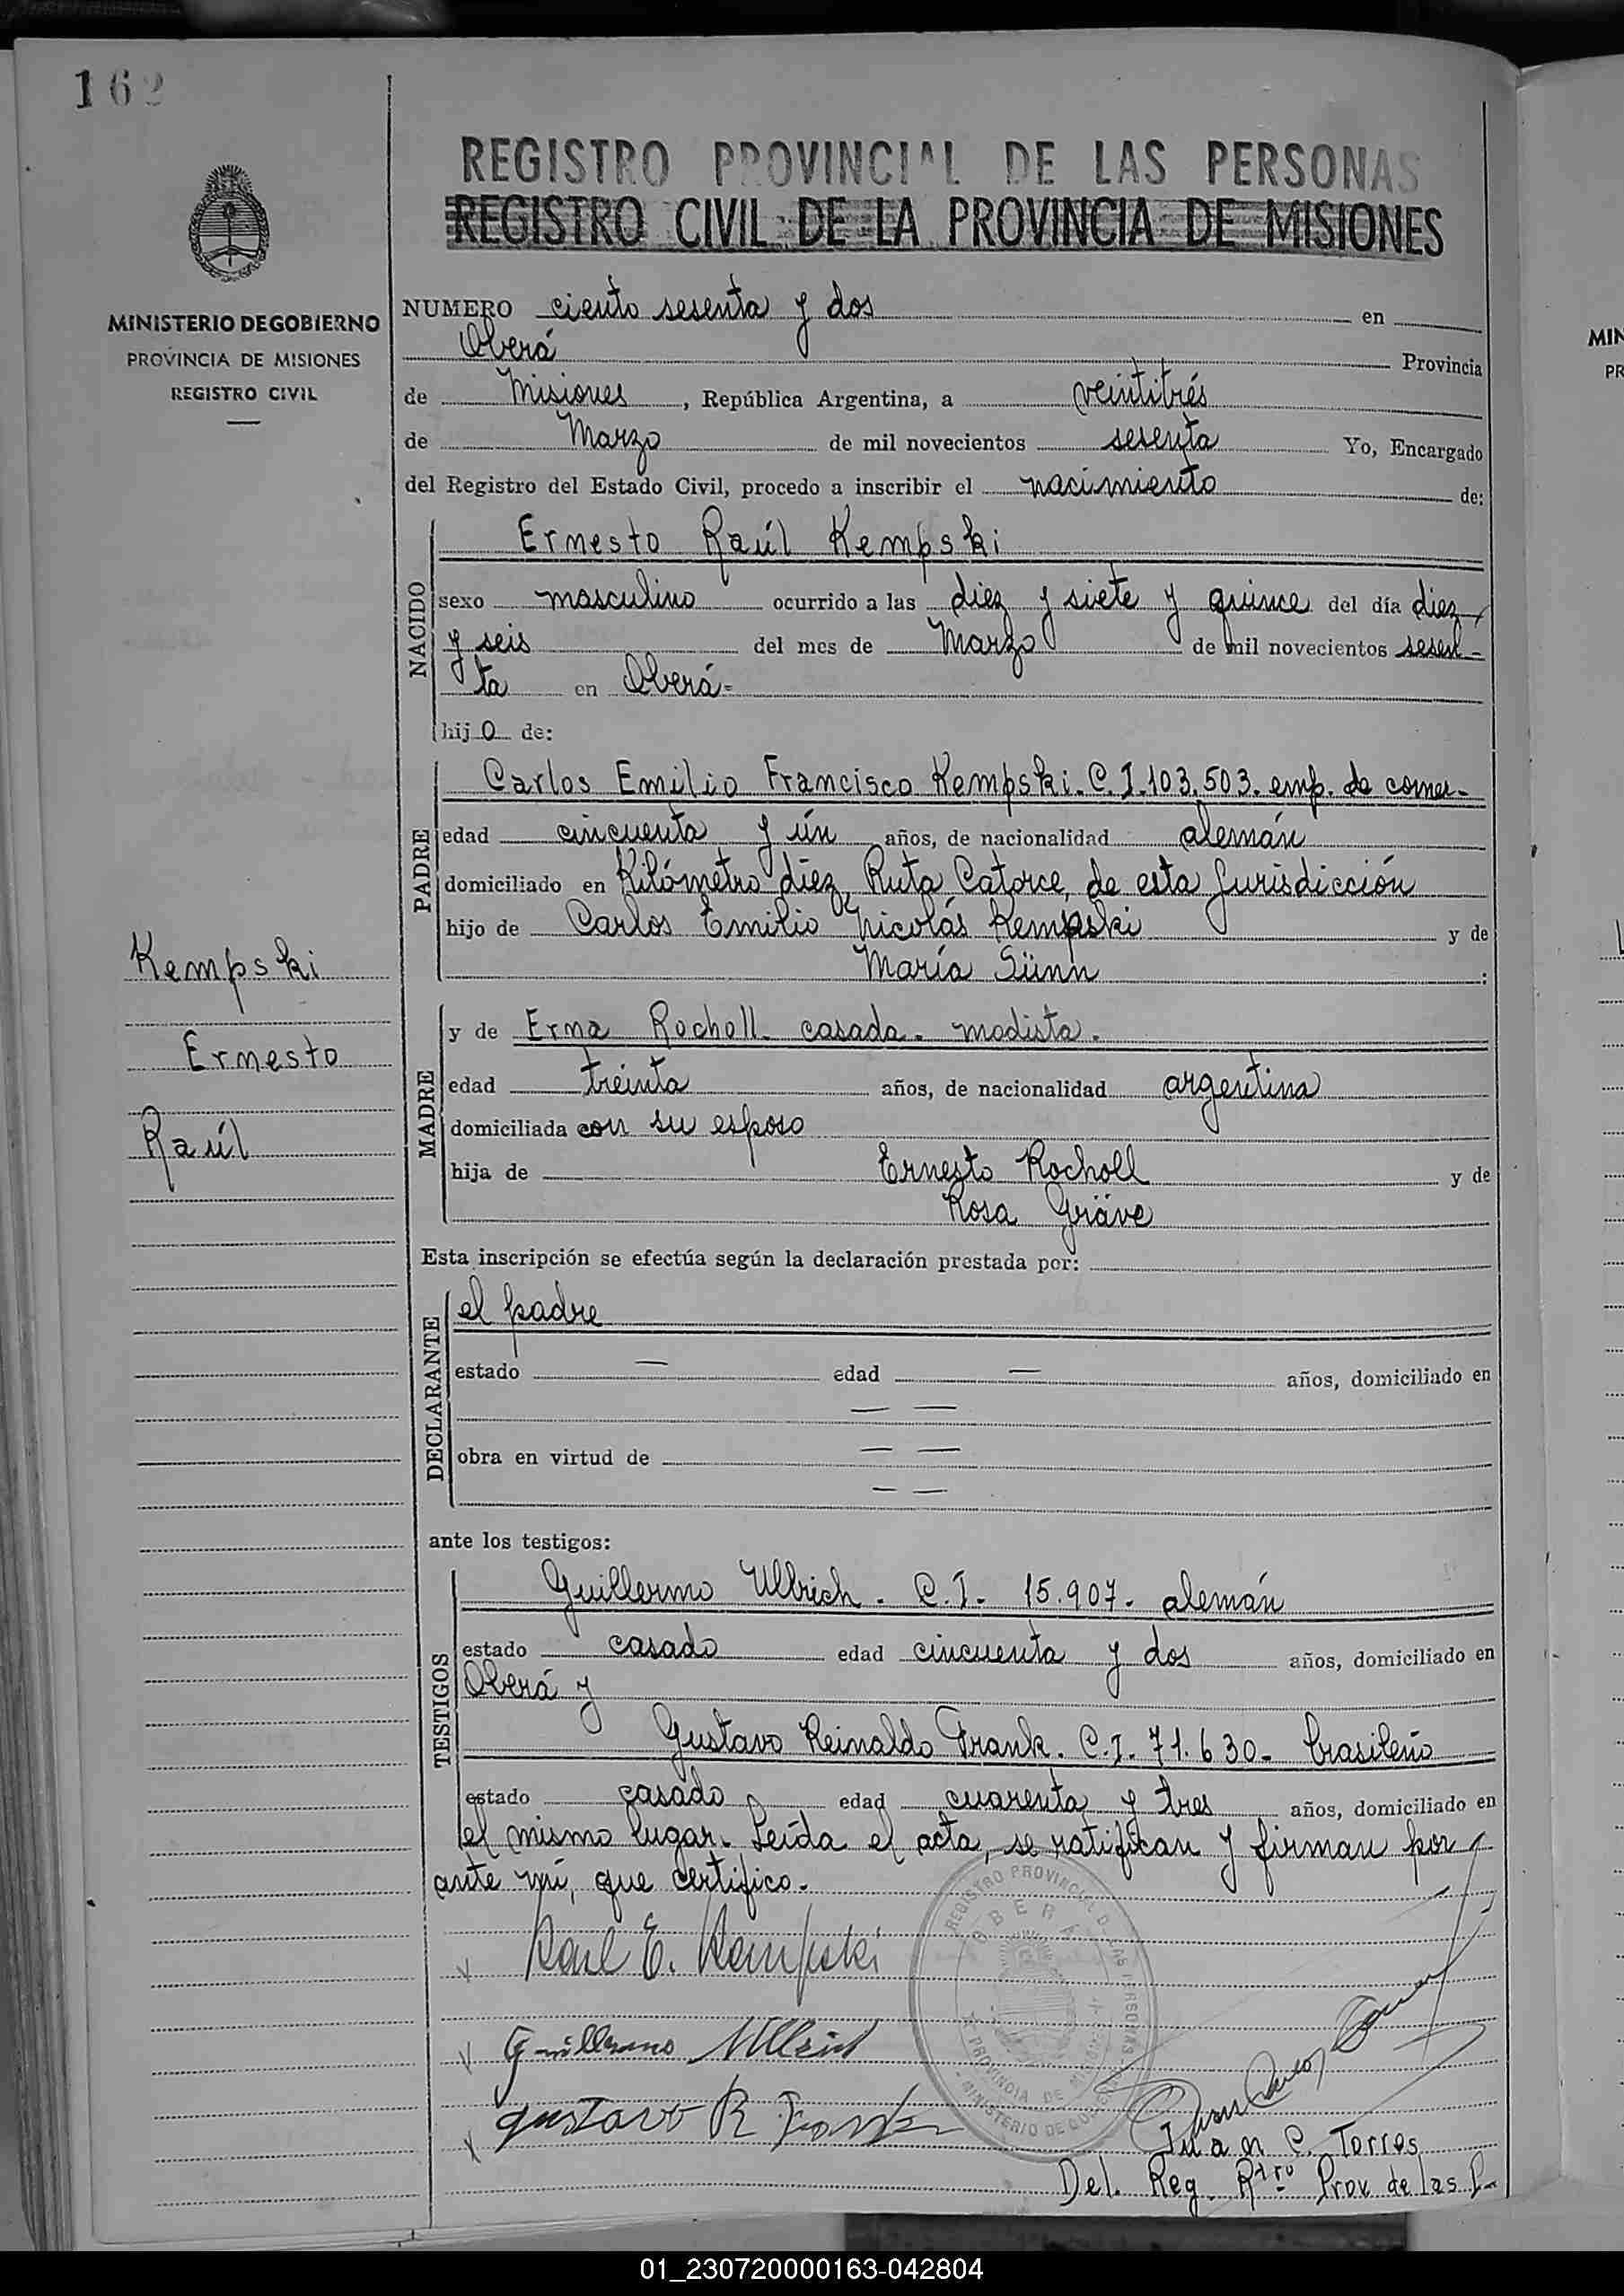 162
REGISTRO PROVINCIAL DE LAS PERSONAS
REGISTRO CIVIL DE LA PROVINCIA DE MISIONES
MINISTERIO DE GOBIERNO
PROVINCIA DE MISIONES
REGISTRO CIVIL
NUMERO ciento sesenta y dos en
Oberá Provincia
de Misiones, República Argentina, a veintitrés
de Marzo de mil novecientos sesenta Yo, Encargado
del Registro del Estado Civil, procedo a inscribir el nacimiento de:
NACIDO
Ernesto Raúl Kempski
sexo masculino ocurrido a las diez y siete y quince del día diez
y seis del mes de Marzo de mil novecientos sesen-
ta en Oberá-
hijo de:
PADRE
Carlos Emilio Francisco Kempski. C.I. 103.503. emp. de comer-
edad cincuenta y ún años, de nacionalidad alemán
domiciliado en Kilómetro diez, Ruta Catorce, de esta Jurisdicción
hijo de Carlos Emilio Nicolás Kempski y de
María Sünn
Kempski
Ernesto
Raúl
MADRE
y de Erna Rocholl. casada. modista.
edad treinta años, de nacionalidad argentina
domiciliada con su esposo
hija de Ernesto Rocholl y de
Rosa Gräve
Esta inscripción se efectúa según la declaración prestada por:
DECLARANTE
el padre
estado — edad — años, domiciliado en
— —
obra en virtud de — —
— —
ante los testigos:
TESTIGOS
Guillermo Ullrich. C.I. 15.907. alemán
estado casado edad cincuenta y dos años, domiciliado en
Oberá y
Gustavo Reinaldo Frank. C.I. 71.630- brasileño
estado casado edad cuarenta y tres años, domiciliado en
el mismo lugar. Leída el acta, se ratifican y firman por
ante mí, que certifico.
Karl E. Kempski
Guillermo Ullrich
Gustavo R. Frank
REGISTRO PROVINCIAL DE LAS PERSONAS
OBERÁ
PROVINCIA DE MISIONES
MINISTERIO DE GOBIERNO
Juan C. Torres
Del. Reg. Rtro Prov. de las P.
MIN
PR
01_230720000163-042804